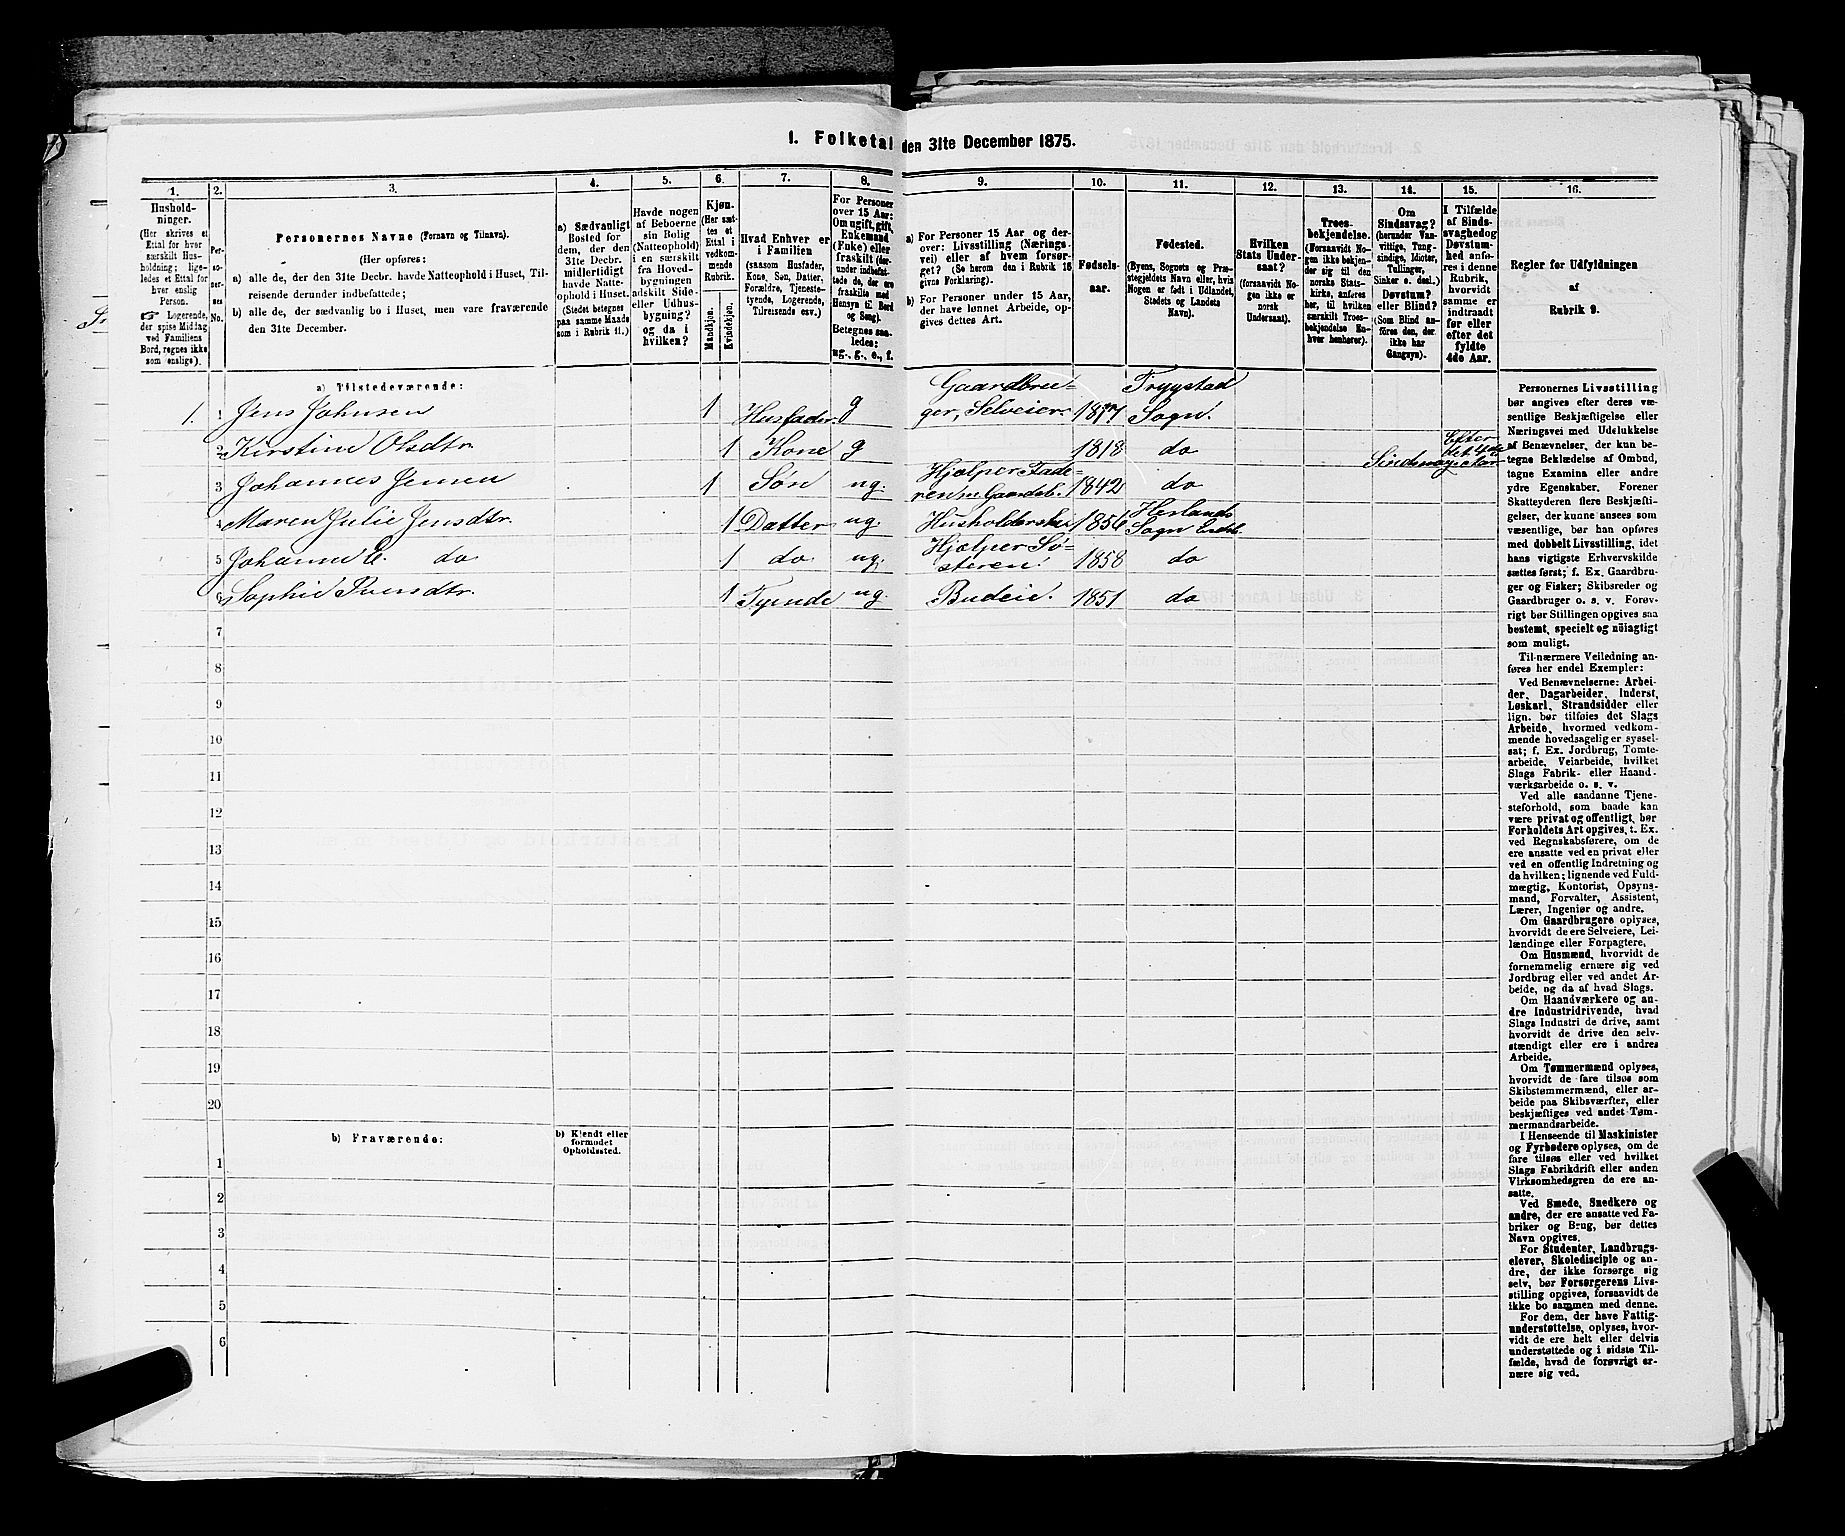 1. Folketal den 31te December 1875.
1.
Hushold-
ninger.
(Her skrives et
Ettal for hver
særskilt Hus-
holdning; lige-
ledes et Ettal for
hver enslig
Person.
☞ Logerende,
der spise Middag
ved Familiens
Bord, regnes ikke
som enslige).
2.
Per-
so-
ner-
nes
No.
3.
Personernes Navne (Fornavn og Tilnavn).
(Her opføres:
a) alle de, der den 31te Decbr. havde Natteophold i Huset, Til-
reisende derunder indbefattede;
b) alle de, der sædvanlig bo i Huset, men vare fraværende
den 31te December.
4.
a) Sædvanligt
Bosted for
dem, der den
31te Decbr.
midlertidigt
havde Natte-
ophold i Huset.
(Stedet betegnes
paa samme Maade
som i Rubrik 11.)
5.
Havde nogen
af Beboerne
sin Bolig
(Natteophold)
i en særskilt
fra Hoved-
bygningen
adskilt Side-
eller Udhus-
bygning?
og da i
hvilken?
6.
Kjøn.
(Her sæt-
tes et
Ettal i
vedkom-
mende
Rubrik.
Mandkjøn.
Kvindekjøn.
7.
Hvad Enhver er
i Familien
(saasom Husfader,
Kone, Søn, Datter,
Forældre, Tjeneste-
tyende, Logerende,
Tilreisende osv.)
8.
For Personer
over 15 Aar:
Om ugift, gift,
Enkemand
(Enke) eller
fraskilt (der-
under indbefat-
tede de, der ere
fraskilte med
Hensyn til Bord
og Seng).
Betegnes saa-
ledes:
ug., g., e., f.
9.
a) For Personer 15 Aar og der-
over: Livsstilling (Nærings-
vei) eller af hvem forsør-
get? (Se herom den i Rubrik 16
givne Forklaring).
b) For Personer under 15 Aar,
der have lønnet Arbeide, op-
gives dettes Art.
10.
Fødsels-
aar.
11.
Fødested.
(Byens, Sognets og Præ-
stegjeldets Navn eller, hvis
Nogen er født i Udlandet,
Stedets og Landets
Navn).
12.
Hvilken
Stats Under-
saat?
(forsaavidt No-
gen ikke er
norsk
Undersaat).
13.
Troes-
bekjendelse.
(Forsaavidt No-
gen ikke bekjen-
der sig til den
norske Stats-
kirke, anføres
her, til hvilken
særskilt Troes-
bekjendelse En-
hver henhører).
14.
Om
Sindssvag?
(herunder Van-
vittige, Tung-
sindige, Idioter,
Tullinger,
Sinker o. desl.)
Døvstum?
eller Blind?
(Som Blind an-
føres den, der
ikke har
Gangsyn).
15.
I Tilfælde
af Sinds-
svaghed og
Døvstum-
hed anfø-
res i denne
Rubrik,
hvorvidt
samme er
indtraadt
før eller
efter det
fyldte
4de Aar.
16.
Regler for Udfyldningen
af
Rubrik 9.
a) Tilstedeværende:
1. 1 Jens Johnsen 1 Husfader g Gaardbru-
ger, Selveier. 1817 Trygstad
Sogn.
2 Kirstine Olsdtr. 1 Kone g 1818 do Sindssvag Efter
det 4de
Aar
3 Johannes Jensen 1 Søn ug. Hjælper Fade-
ren m Gaardsb. 1842 do
4 Maren Julie Jensdtr. 1 Datter ug. Husholderske 1856 Herlands
Sogn
5 Johanne E. do 1 do ug. Hjælper Sø-
steren. 1858 do
6 Sophie 1 Tyende ug. Budeie. 1851 do
7
8
9
10
11
12
13
14
15
16
17
18
19
20
b) Fraværende:
b) Kjendt eller
formodet
Opholdssted.
1
2
3
4
5
6
Personernes Livsstilling
bør angives efter deres væ-
sentlige Beskjæftigelse eller
Næringsvei med Udelukkelse
af Benævnelser, der kun be-
tegne Beklædelse af Ombud,
tagne Examina eller andre
ydre Egenskaber. Forener
Skatteyderen flere Beskjæfti-
gelser, der kunne ansees som
væsentlige, bør han opføres
med dobbelt Livsstilling, idet
hans vigtigste Erhvervskilde
sættes først; f. Ex. Gaardbru-
ger og Fisker; Skibsreder og
Gaardbruger o. s. v. Forøv-
rigt bør Stillingen opgives saa
bestemt, specielt og nöiagtigt
som muligt.
Til nærmere Veiledning an-
føres her endel Exempler:
Ved Benævnelserne: Arbei-
der, Dagarbeider, Inderst,
Løskarl, Strandsidder eller
lign. bør tilføies det Slags
Arbeide, hvormed vedkom-
mende hovedsagelig er syssel-
sat; f. Ex. Jordbrug, Tomte-
arbeide, Veiarbeide, hvilket
Slags Fabrik- eller Haand-
værksarbeide o. s. v.
Ved alle saadanne Tjene-
steforhold, som baade kan
være privat og offentligt, bør
Forholdets Art opgives, t. Ex.
ved Regnskabsførere, om de
ere ansatte ved en privat eller
ved en offentlig Indretning og
da hvilken; lignende ved Fuld-
mægtig, Kontorist, Opsyns-
mand, Forvalter, Assistent,
Lærer, Ingeniør og andre.
Om Gaardbrugere oplyses,
hvorvidt de ere Selveiere, Lei-
lændinge eller Forpagtere.
Om Husmænd, hvorvidt de
fornemmelig ernære sig ved
Jordbrug eller ved andet Ar-
beide, og da af hvad Slags.
Om Haandværkere og an-
dre Industridrivende, hvad
Slags Industri de drive, samt
hvorvidt de drive den selv-
stændigt eller ere i andres
Arbeide.
Om Tømmermænd oplyses,
hvorvidt de fare tilsøs som
Skibstømmermænd, eller ar-
beide paa Skibsværfter, eller
beskjæftiges ved andet Tøm-
mermandsarbeide.
I Henseende til Maskinister
og Fyrbødere oplyses, om de
fare tilsøs eller ved hvilket
Slags Fabrikdrift eller anden
Virksomhedsgren de ere an-
satte.
Ved Smede, Snedkere og
andre, der ere ansatte ved Fa-
briker og Brug, bør dettes
Navn opgives.
For Studenter, Landbrugs-
elever, Skoledisciple og an-
dre, der ikke forsørge sig
selv, bør Forsørgerens Livs-
stilling opgives, forsaavidt de
ikke bo sammen med denne.
For dem, der have Fattig-
understøttelse, oplyses, hvor-
vidt de ere helt eller delvis
understøttede og i sidste Til-
fælde, hvad de forøvrigt er-
nære sig ved.